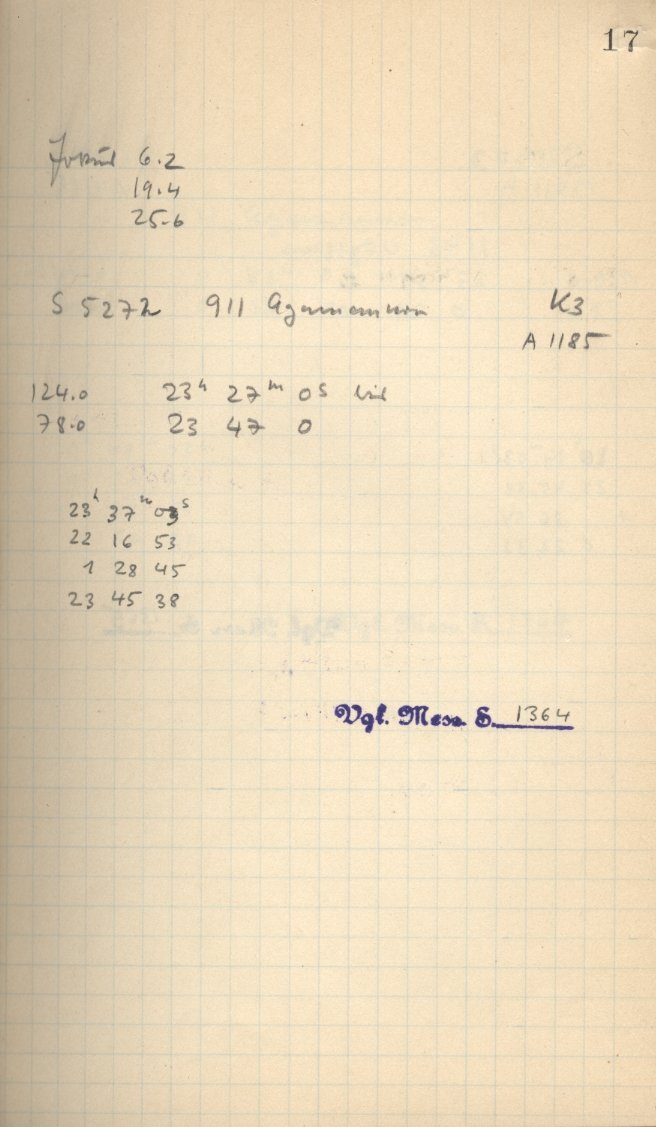 17
6.2
19.4
25.6
S 5272 911 Agamemnon K3
A 1185
124.0 23h 27m 0s
78.0 23 47 0
23h 37m 03s
22 16 53
1 28 45
23 45 38
Vgl. Mess. S. 1364